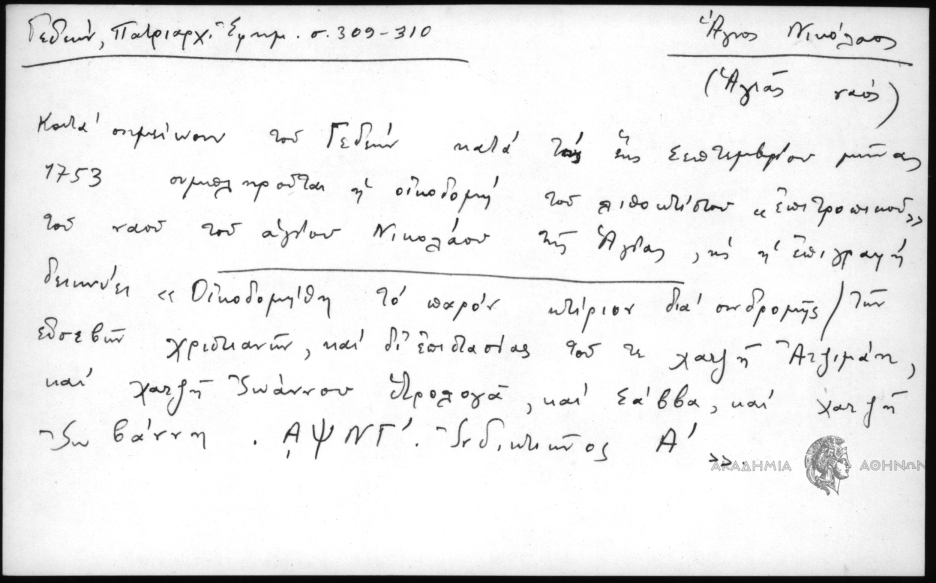 Γεδεών, Πατριαρχ. Ἐφημ. σ. 309-310
Ἅγιος Νικόλαος
(Ἁγιᾶς ναός)
Κατά σημείωσιν τοῦ Γεδεών κατά τάς ἕξ Σεπτεμβρίου μῆνας
1753 συμπληροῦται ἡ οἰκοδομή τοῦ λιθοκτίστου «ἐπιτροπικοῦ»
τοῦ ναοῦ τοῦ ἁγίου Νικολάου τῆς Ἁγίας, ὡς ἡ ἐπιγραφή
δεικνύει «Οἰκοδομήθη τό παρόν κτίριον διά συνδρομῆς / τῶν
εὐσεβῶν χριστιανῶν, καί δι' ἐπιστασίας τοῦ τε χατζῆ Ἀτζιμάνη,
καί χατζῆ Ἰωάννου Ὡρολογᾶ, καί Σάββα, καί χατζῆ
Ἰωβάννη. ͵ΑΨΝΓ΄. Ἰνδικτιῶνος Α΄ ».
ΑΚΑΔΗΜΙΑ ΑΘΗΝΩΝ